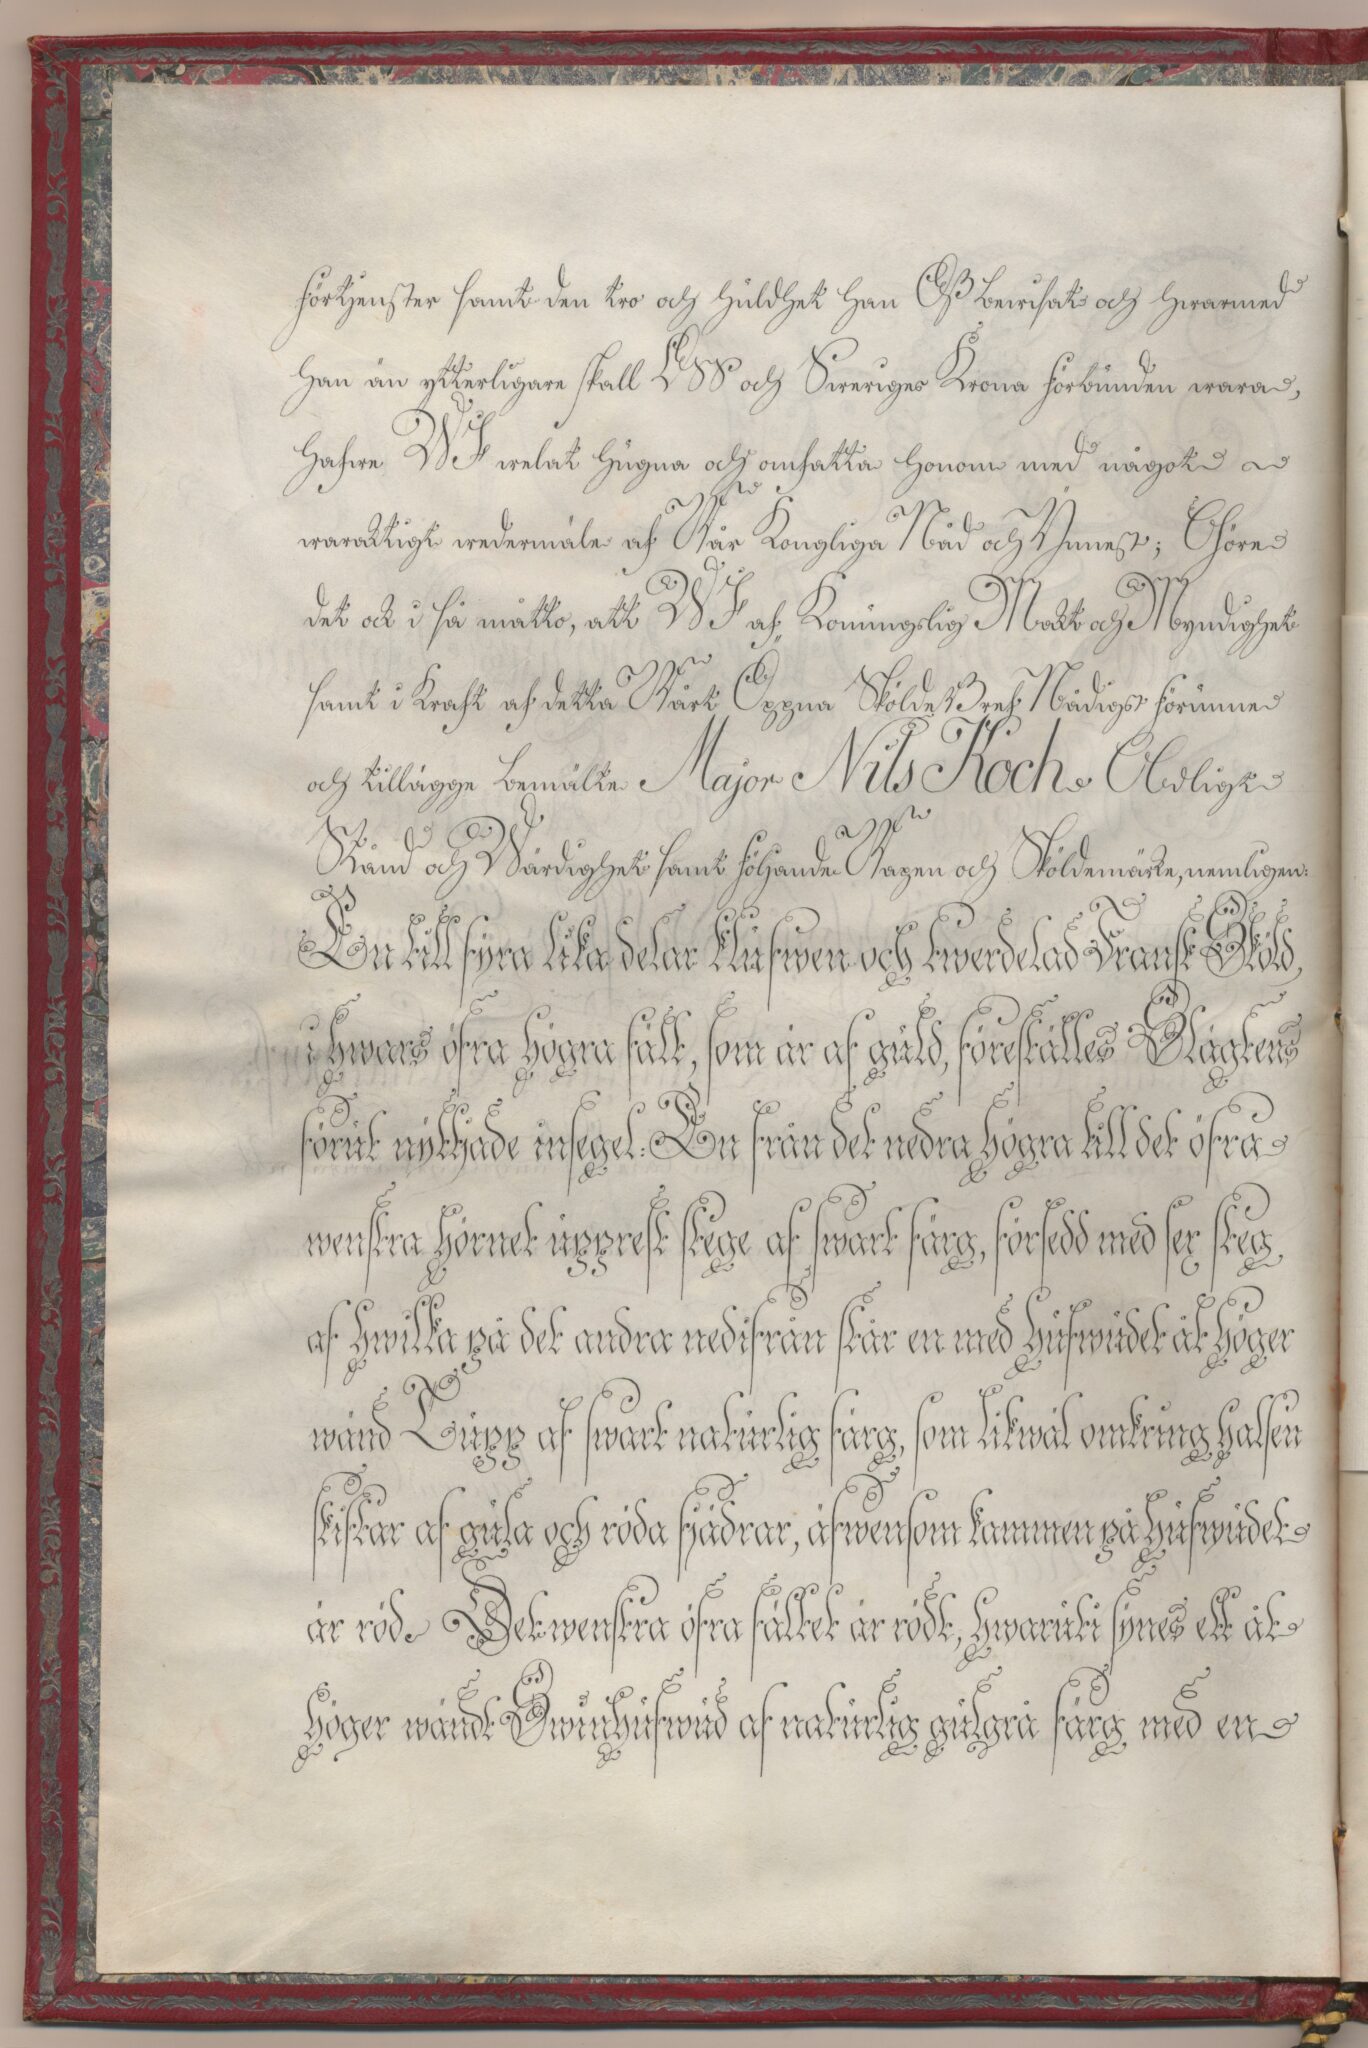 förtjenster samt den tro och huldhet han Oß bewisat och hwarmed
han än ytterligare skall OSS och Sweriges Krona förbunden wara,
hafwe WI welat hugna och omfatta honom med något
waracktigt wedermäle af Wår Kongliga Nåd och Ynnest; Giöre
det ock i så måtto, att WI af Konungslig Mackt och Myndighet
samt i Kraft af detta Wårt Öppna Sköldebref Nådigst förunne
och tillägge bemälte Major Nils Koch Adligt
Stånd och Wärdighet samt följande Wapen och Sköldemärke, nemligen:
En till fyra lika delar klufwen och twerdelad Fransk Sköld,
i hwars öfra högra fält, som är af guld, föreställes Slägtens
förut nyttjade insegel: En från det nedra högra till det öfra
wenstra hörnet upprest stege af swart färg, försedd med sex steg,
af hwilka på det andra nedifrån står en med hufwudet åt höger
wänd Tupp af swart naturlig färg, som likwäl omkring halsen
skiftar af gula och röda fjädrar, äfwensom kammen på hufwudet
är röd. Det wenstra öfra fältet är rödt, hwaruti synes ett åt
höger wändt Swinhufwud af naturlig gulgrå färg med en